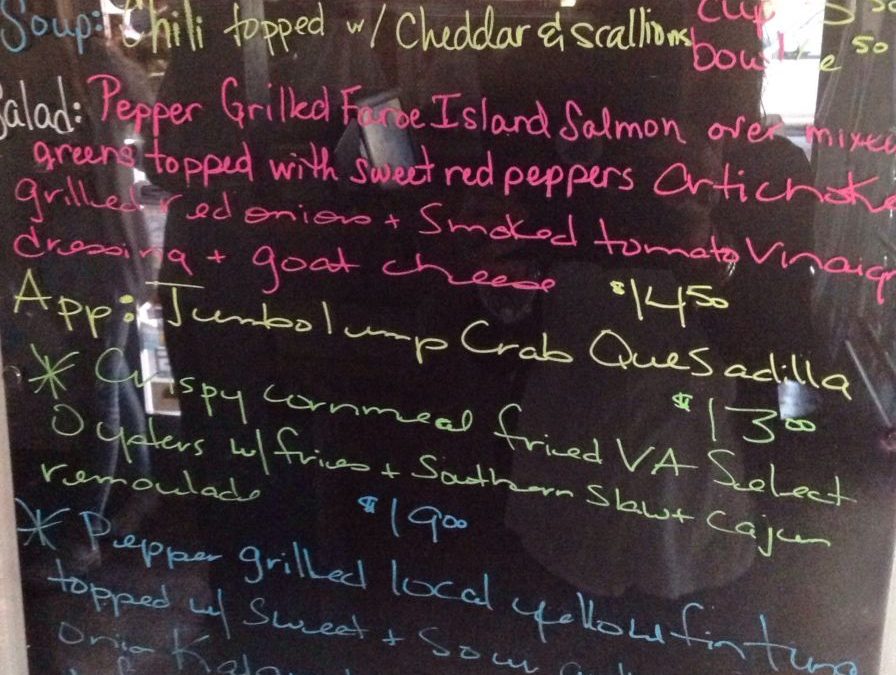 Soup: Chili topped w/ Cheddar & scallions cup 5 50
bowl 50
Salad: Pepper Grilled Faroe Island Salmon over mixed
greens topped with sweet red peppers artichoke
grilled red onions + Smoked tomato Vinaig
dressing + goat cheese $14 50
App: Jumbo lump Crab Quesadilla
$13 00
* Crispy cornmeal fried VA Select
Oysters w/ fries + Southern Slaw + Cajun
remoulade $19 00
* Pepper grilled local yellowfin tuna
topped w/ Sweet + Sour